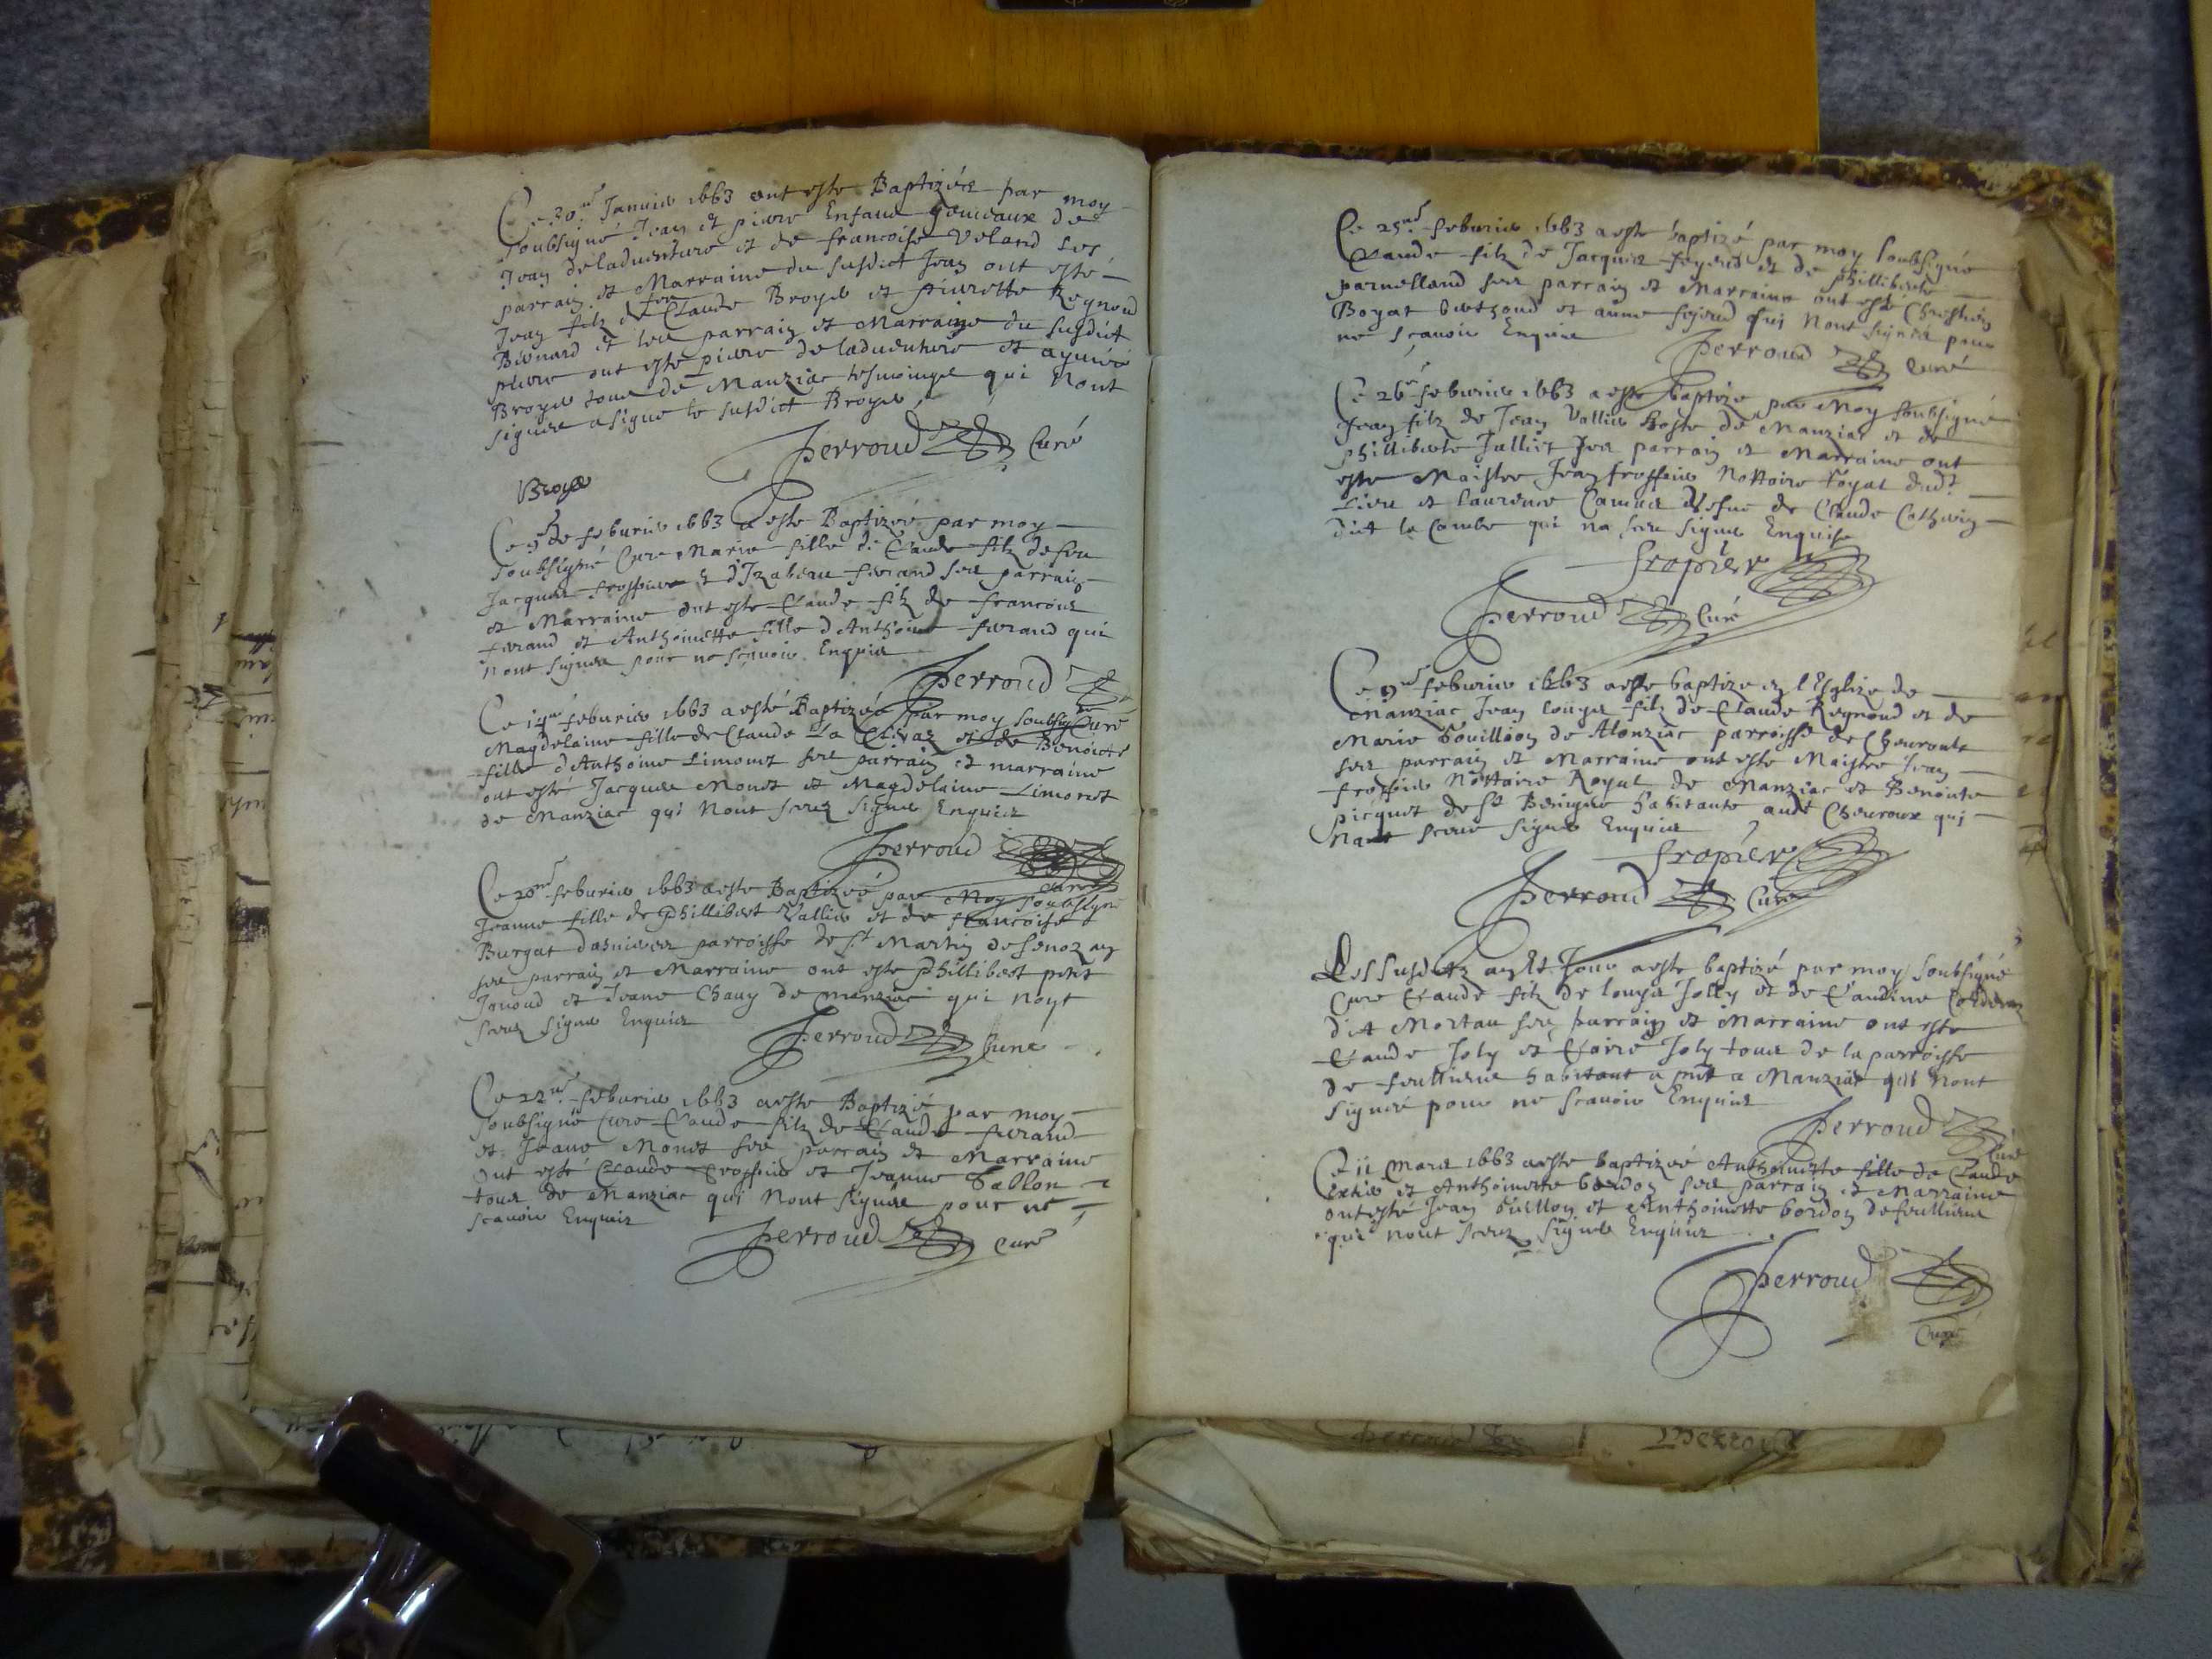 Ce 30me Januier 1663 ont este Baptizés par moy
soubsigné Jean et pierre Enfans gemeaux de
Jean deladuenture et de francoise Veland ses
parrain et Marraine du susdict Jean ont esté
Jean filz de feu Claude Broyer et pierrette Regnoud
parrain et Marraine du susdict
pierre ont esté pierre deladuenture et aymée
Broyer tous de Manziac tesmoings qui Nont
signer a signé le susdict Broyer
Perroud Curé
Broyer
feburier 1663 a este Baptizée par moy
soubsigné Cure Marie fille de Claude filz de feu
Jacques frossier et d'Izabeau ferrand ses parrain
et Marraine ont este Claude filz de francois
ferrand et Anthoinette fille d'Anthoine ferrand qui
nont signer pour ne scauoir Enquis
Perroud
Curé
Ce 14me feburier 1663 a esté Baptizée par moy soubsigné
Magdelaine fille de Claude La et de Benoicte
fille d'Anthoine Limonet ses parrain et marraine
ont esté Jacques Monet et Magdelaine Limonet
de Manziac qui Nont sceuz signer Enquis
Perroud
Curé
Ce 20me feburier 1663 a este Baptizée par Moy soubsigné
Jeanne fille de Phillibert Vallier et de francoise
Burgat dasnieres parroisse de St Martin de senozan
ses parrain et Marraine ont este Phillibert petit
Janoud et Jeane Chany de manziac qui Nont
sceuz signer Enquis
Perroud Curé
Ce 22me feburier 1663 a este Baptizé par moy
soubsigné Cure Claude filz de Claude ferrand
et Jeane Monet ses parrain et Marraine
ont esté Claude frossier et Jeanne Sablon
tous de Manziac qui Nont signer pour ne
scauoir Enquis
Perroud Curé
Ce 25me feburier 1663 a este baptizé par moy soubsigné
Claude filz de Jacques feyeud et de Philliberte
parnelland ses parrain et Marraine ont esté
Boyat et anne feyeud qui Nont signés pour
ne scauoir Enquis
Perroud Curé
Ce 26me feburier 1663 a este baptizé par Moy soubsigné
Jean filz de Jean Vallier hoste de Manziac et de
philliberte Julliet ses parrain et Marraine ont
este Maistre Jean frossier Nottaire royal dudt
Lieu et laurence Camus vefue de Claude Catherin
dict la Combe qui na sceu signer Enquise
fropier
Perroud Curé
feburier 1663 a este baptizé en l'Esglize de
Manziac Jean louys filz de Claude Regnoud et de
Marie de parroisse de Cheuroulx
ses parrain et Marraine ont este Maistre Jean
frossier Nottaire Royal de Manziac et Benoiste
picquet de St Benigne habitante audt Cheuroux qui
Na sceu signer Enquis
fropier
Perroud Curé
Les susdictz an et Jour a este baptizé par moy soubsigné
Cure Claude filz de louys Jolly et de Claudine
dict Mortau ses parrain et Marraine ont este
Claude Joly et Claire Joly tous de la parroisse
de feullieus habitant a pnt a Manziac qui Nont
signéé pour ne scauoir Enquis
Perroud
Curé
Ce 11 Mars 1663 a este baptizée Anthoinette fille de Claude
et Anthoinette bordon ses parrain et Marraine
ont esté Jean et Anthoinette bordon de feullieus
qui nont sceuz signer Enquis
Perroud
Curé